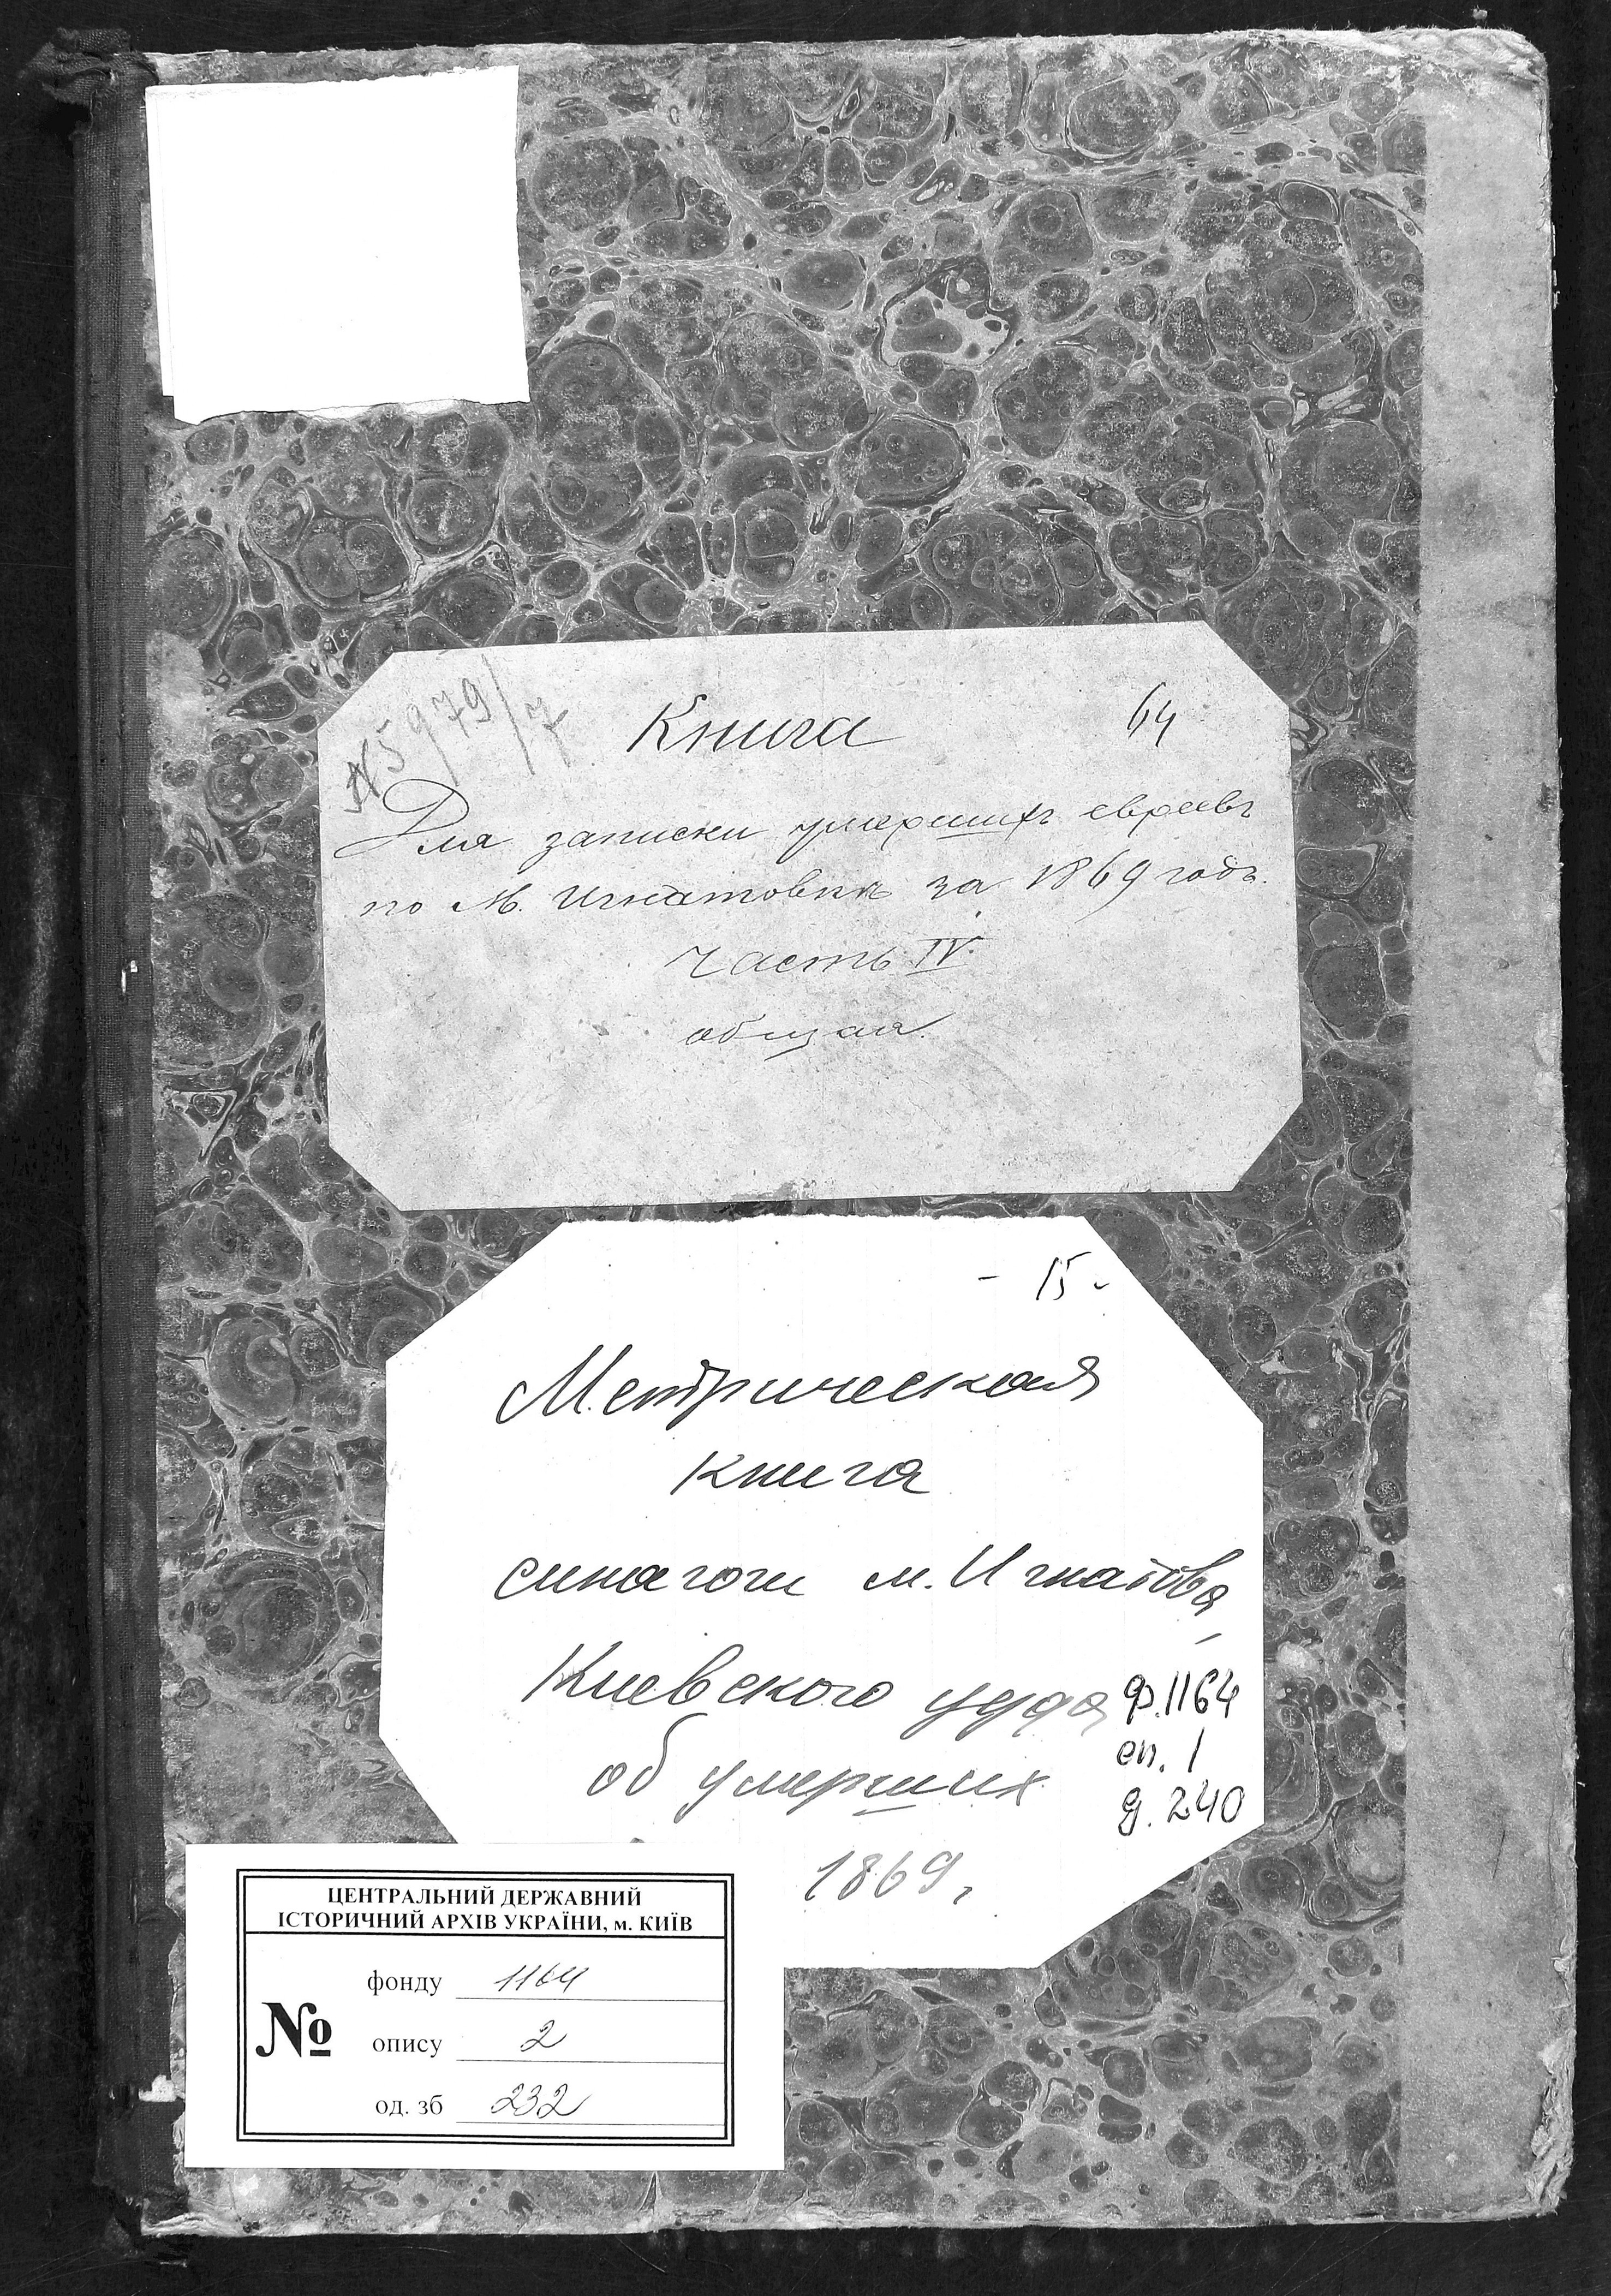 № 5979/7
Книга
64
Для записки умершихъ евреевъ
по М. Игнатовкѣ за 1869 годъ.
Часть IV.
общая.
- 15 -
Метрическая
книга
синагоги м. Игнатовка
Киевского уезда
об умерших
1869.
ф. 1164
оп. 1
д. 240
ЦЕНТРАЛЬНИЙ ДЕРЖАВНИЙ
ІСТОРИЧНИЙ АРХІВ УКРАЇНИ, м. КИЇВ
№
фонду 1164
опису 2
од. зб 232